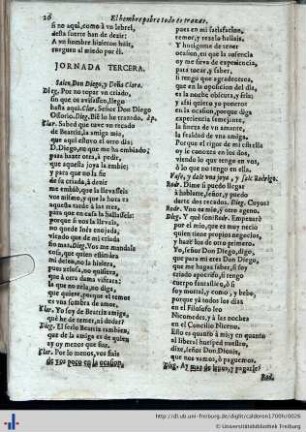 26 El hombre pobre todo es trazas.
si no aqui, como à vn lebrel,
desta suerte han de dezir:
A vn hombre hizieron hàls,
cargues al miedo por si.
JORNADA TERCERA.
Salen Don Diego, y Doña Clara.
Dieg. Por no topar vn criado,
sin que os avisasse, llego
hasta aqui. Clar. Señor Don Diego
Ossorio, Dieg. Biē lo he trazado. ap.
Clar. Sabed que tuve vn recado
de Beatriz, la amiga mia,
que aqui estuvo el otro dia;
D. Diego, en que me ha embiado
para hazer otra, à pedir,
que aquella joya la embie;
y para que no la fie
de su criada, à dezir
me embiò, que la llevasseis
vos mismo, y que la hora es
aquesta
para que en casa la hallasseis:
porque si vos la llevais,
no quede Inès enojada,
viendo que de mi criada
sin mas. Dieg. Vos me mandais
cosa, que quien estimàra
mi deseo, no la hiziera,
pues zelosa, no quisiera,
que à otra dama visitara:
la que no zela, no dige,
que quiere, porque el temor
es vna sombra de amor.
Clar. Yo soy de Beatriz amiga,
què he de temer, ni dudar?
Dieg. El serlo Beatriz tambien,
que de la amiga es de quien
ay oy menos que fiar.
Clar. Por lo menos, vos fiais
de vos poco en la ocasion,
pues en mi satisfacion,
temor, y rezelo hallais.
Y huelgome de tener
ocasion, en que la ausencia
oy me sirva de experiencia,
para tocar, y saber,
si tengo que agradeceros,
que en la oposicion del dia,
es la noche obscura, y fria;
y assi quiero yo poneros
en la ocasion, porque diga
experiencia semejante,
la fineza de vn amante,
la fealdad de vna amiga.
Porque el rigor de mi estrella
oy se conozca en los dos,
viendo lo que tengo en vos,
ò lo que no tengo en ella.
Vase, y dale vna joya, y sale Rodrigo.
Rodr. Dime si puedo llegar
à hablarte, señor, y puedo
darte dos recados. Dieg. Cuyos?
Rodr. Vno es mio, y otro ageno.
Dieg. Y què son? Rodr. Empezarè
por el mio, que es muy necio
quien tiene propios negocios,
y haze los de otro primero.
Yo, señor Don Diego, digo,
que para mi eres Don Diego,
que me hagas saber, si soy
criado apocrifo, ò tengo
cuerpo fantastico, ò si
soy mortal, y como, y bebo,
porque yà todos los dias
en el Filosofo leo
Nicomedes, y à las noches
en el Concilio Niceno.
Esto es quanto à mi; y en quanto
al liberal huesped nuestro,
dize, señor Don Dionis,
que nos vamos, ò paguemos.
Dieg. Ay mas de irnos, y pagarle?
Rod.
http://dl.ub.uni-freiburg.de/diglit/calderon1700ﬁc/0028
© Universitätsbibliothek Freiburg